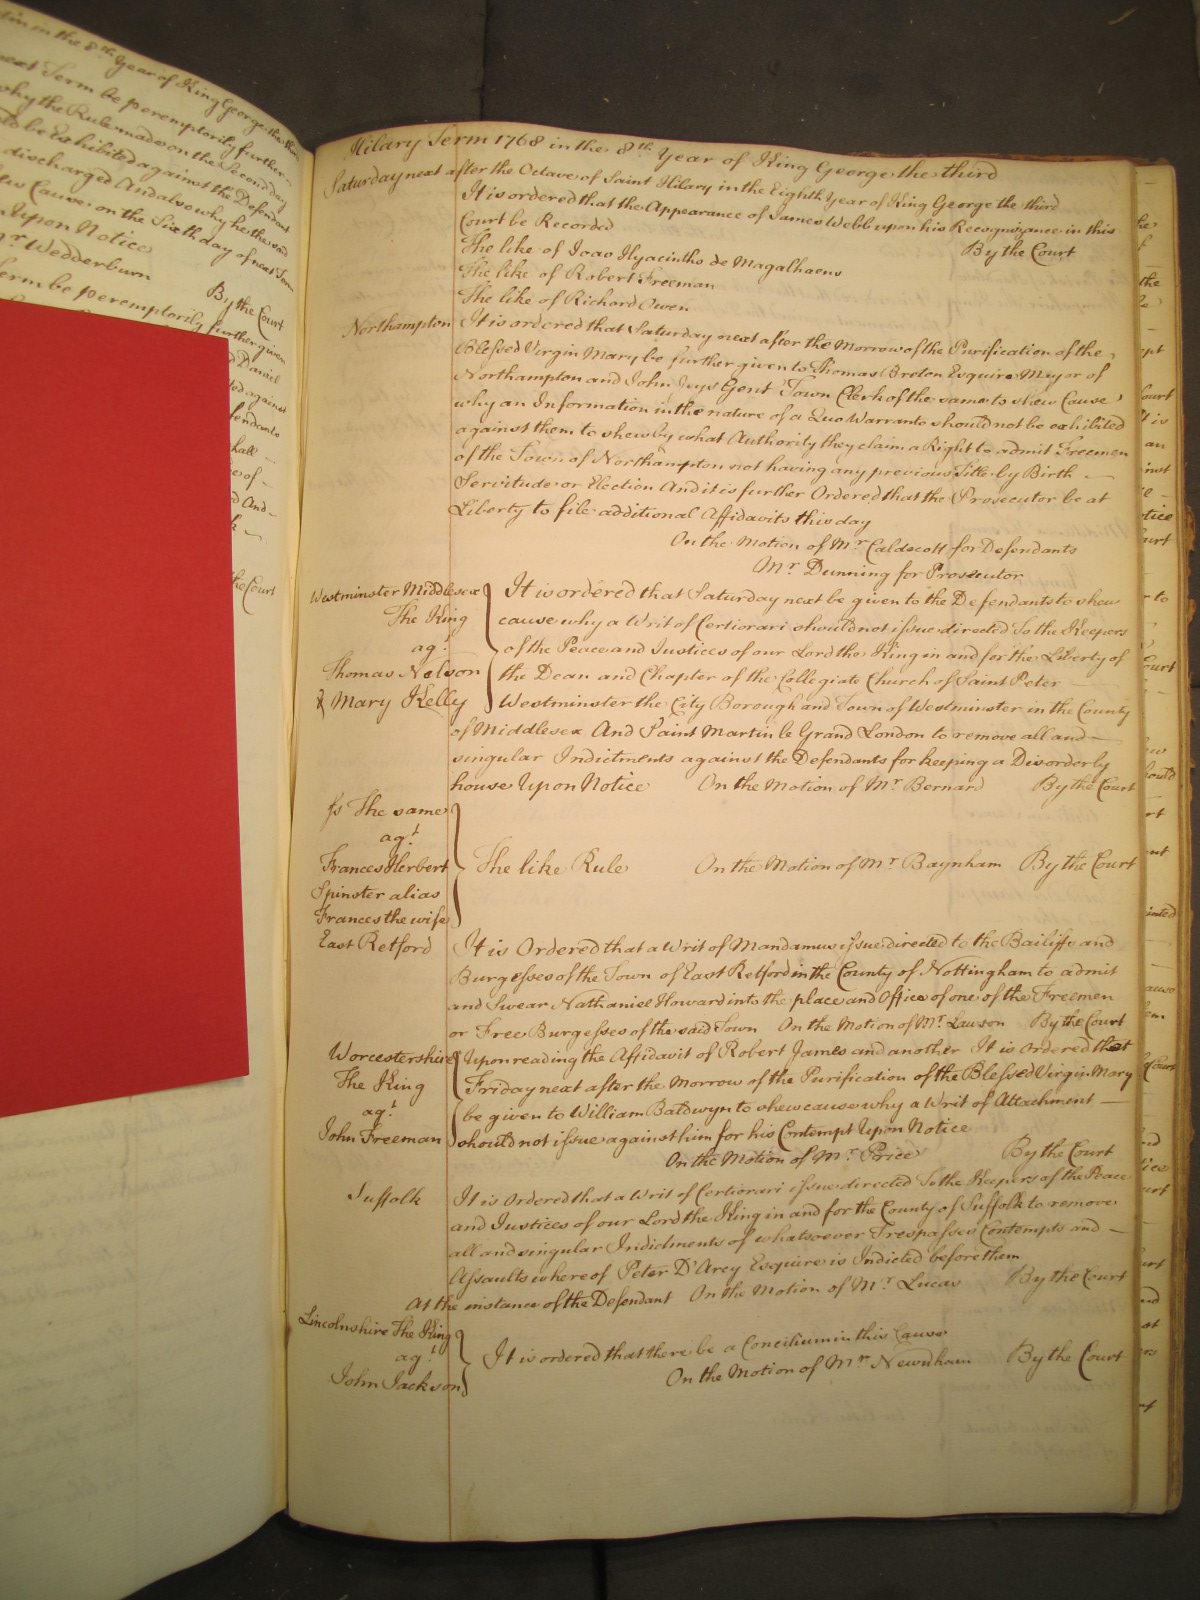 tin in the 8th Year of King George the third
next Term be peremptorily further
why the Rule made on the Second day
be Exhibited against the Defendant
discharged And also why he the said
Cause on the Sixth day of next Term
Upon Notice
Mr Wedderburn
By the Court
Term be peremptorily further given
Daniel
against
Defendants
shall
of
And
the Court
Hilary Term 1768 in the 8th Year of King George the third
Saturday next after the Octave of Saint Hilary in the Eighth Year of King George the third
It is ordered that the Appearance of James Webb upon his Recognizance in this
Court be Recorded By the Court
The like of Joao Hyacintho de Magalhaens
The like of Robert Freeman
The like of Richard Owen
Northampton It is ordered that Saturday next after the Morrow of the Purification of the
Blessed Virgin Mary be further given to Thomas Breton Esquire Mayor of
Northampton and John Jeys Gent Town Clerk of the same to shew Cause
why an Information in the nature of a Quo Warranto should not be exhibited
against them to shew by what Authority they claim a Right to admit Freemen
of the Town of Northampton not having any previous Title by Birth —
Servitude or Election And it is further Ordered that the Prosecutor be at
Liberty to file additional Affidavits this day
On the Motion of Mr Caldecott for Defendants
Mr Dunning for Prosecutor
Westminster Middlesex It is ordered that Saturday next be given to the Defendants to shew
The King cause why a Writ of Certiorari should not issue directed To the Keepers
agt of the Peace and Justices of our Lord the King in and for the Liberty of
Thomas Nelson the Dean and Chapter of the Collegiate Church of Saint Peter —
& Mary Kelly Westminster the City Borough and Town of Westminster in the County
of Middlesex And Saint Martin le Grand London to remove all and —
singular Indictments against the Defendants for keeping a Disorderly
house Upon Notice On the Motion of Mr Bernard By the Court
fs The same
agt
Frances Herbert The like Rule On the Motion of Mr Baynham By the Court
Spinster alias
Frances the wife
East Retford It is Ordered that a Writ of Mandamus issue directed to the Bailiffs and
Burgesses of the Town of East Retford in the County of Nottingham to admit
and Swear Nathaniel Howard into the place and Office of one of the Freemen
or Free Burgesses of the said Town On the Motion of Mr Lawson By the Court
Worcestershire Upon reading the Affidavit of Robert James and another It is ordered that
The King Friday next after the Morrow of the Purification of the Blessed Virgin Mary
agt be given to William Baldwyn to shew cause why a Writ of Attachment —
John Freeman should not issue against him for his Contempt Upon Notice
On the Motion of Mr Price By the Court
Suffolk It is Ordered that a Writ of Certiorari issue directed To the Keepers of the Peace
and Justices of our Lord the King in and for the County of Suffolk to remove
all and singular Indictments of whatsoever Trespasses Contempts and —
Assaults whereof Peter D'Arcy Esquire is Indicted before them
At the instance of the Defendant On the Motion of Mr Lucas By the Court
Lincolnshire The King
agt It is ordered that there be a Concilium in this Cause
John Jackson On the Motion of Mr Newnham By the Court